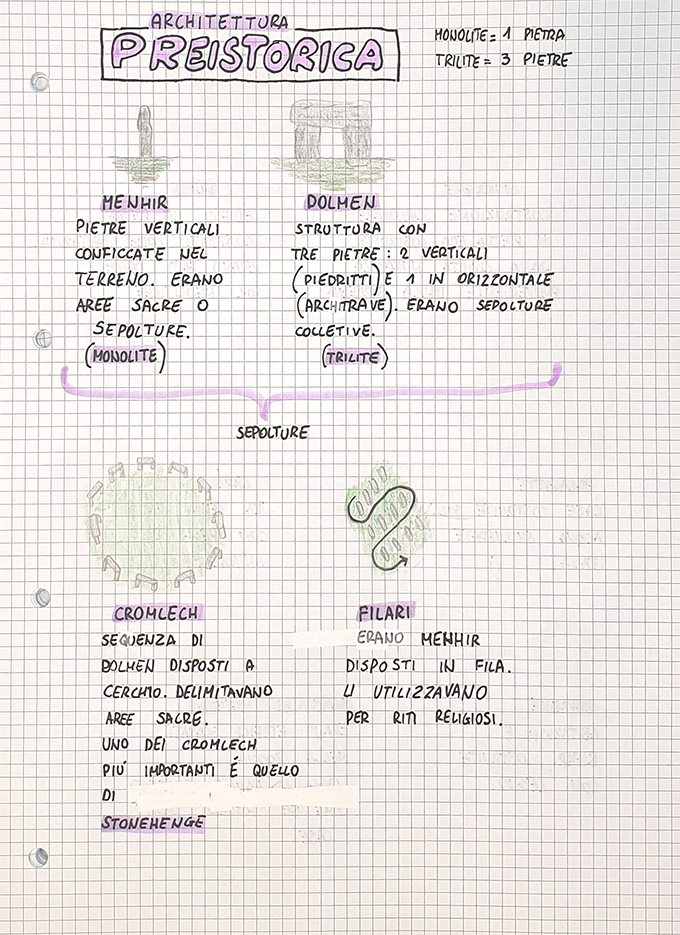 ARCHITETTURA
PREISTORICA
MONOLITE = 1 PIETRA
TRILITE = 3 PIETRE
MENHIR
PIETRE VERTICALI
CONFICCATE NEL
TERRENO. ERANO
AREE SACRE O
SEPOLTURE.
(MONOLITE)
DOLMEN
STRUTTURA CON
TRE PIETRE: 2 VERTICALI
(PIEDRITTI) E 1 IN ORIZZONTALE
(ARCHITRAVE). ERANO SEPOLTURE
COLLETIVE.
(TRILITE)
SEPOLTURE
CROMLECH
SEQUENZA DI
DOLMEN DISPOSTI A
CERCHIO. DELIMITAVANO
AREE SACRE.
UNO DEI CROMLECH
PIÚ IMPORTANTI É QUELLO
DI
STONEHENGE
FILARI
ERANO MENHIR
DISPOSTI IN FILA.
LI UTILIZZAVANO
PER RITI RELIGIOSI.